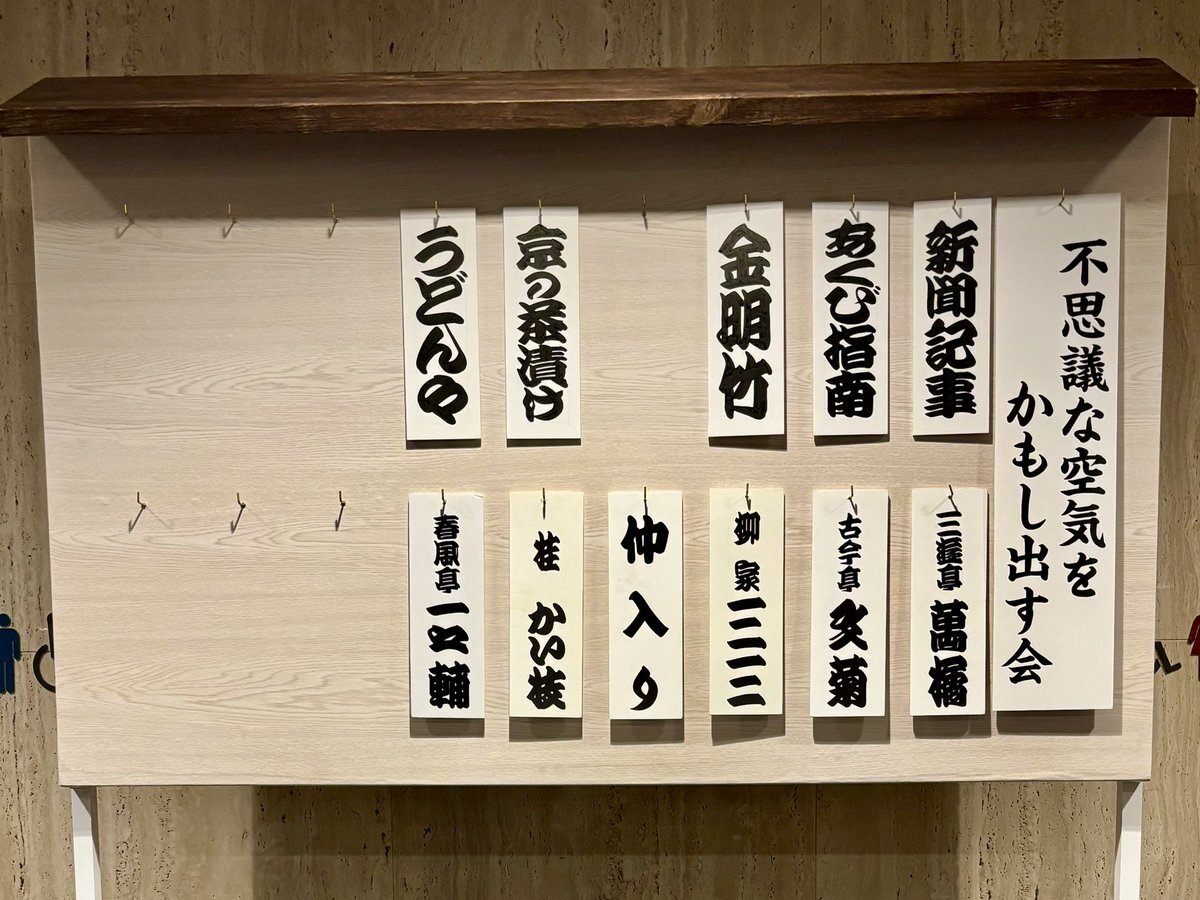 不思議な空気を
かもし出す会
新聞記事
三遊亭 萬橘
あくび指南
古今亭 文菊
金明竹
柳家 三三
仲入り
京の茶漬け
桂 かい枝
うどんや
春風亭 一之輔